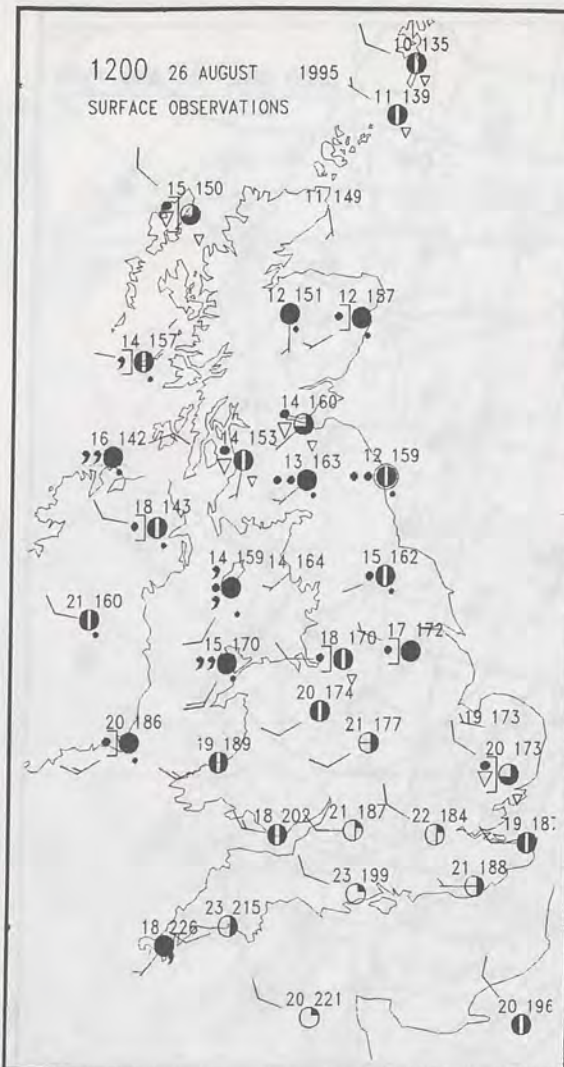 10 135
1200 26 AUGUST 1995
11 139
SURFACE OBSERVATIONS
15 150
11 149
12 151
12 157
14 157
14 160
16 142
14 153
13 163
12 159
18 143
14 159
14 164
15 162
21 160
15 170
18 170
17 172
20 174
19 173
20 186
19 189
21 177
20 173
18 202
21 187
22 184
19 187
23 199
21 188
23 215
18 226
20 221
20 196